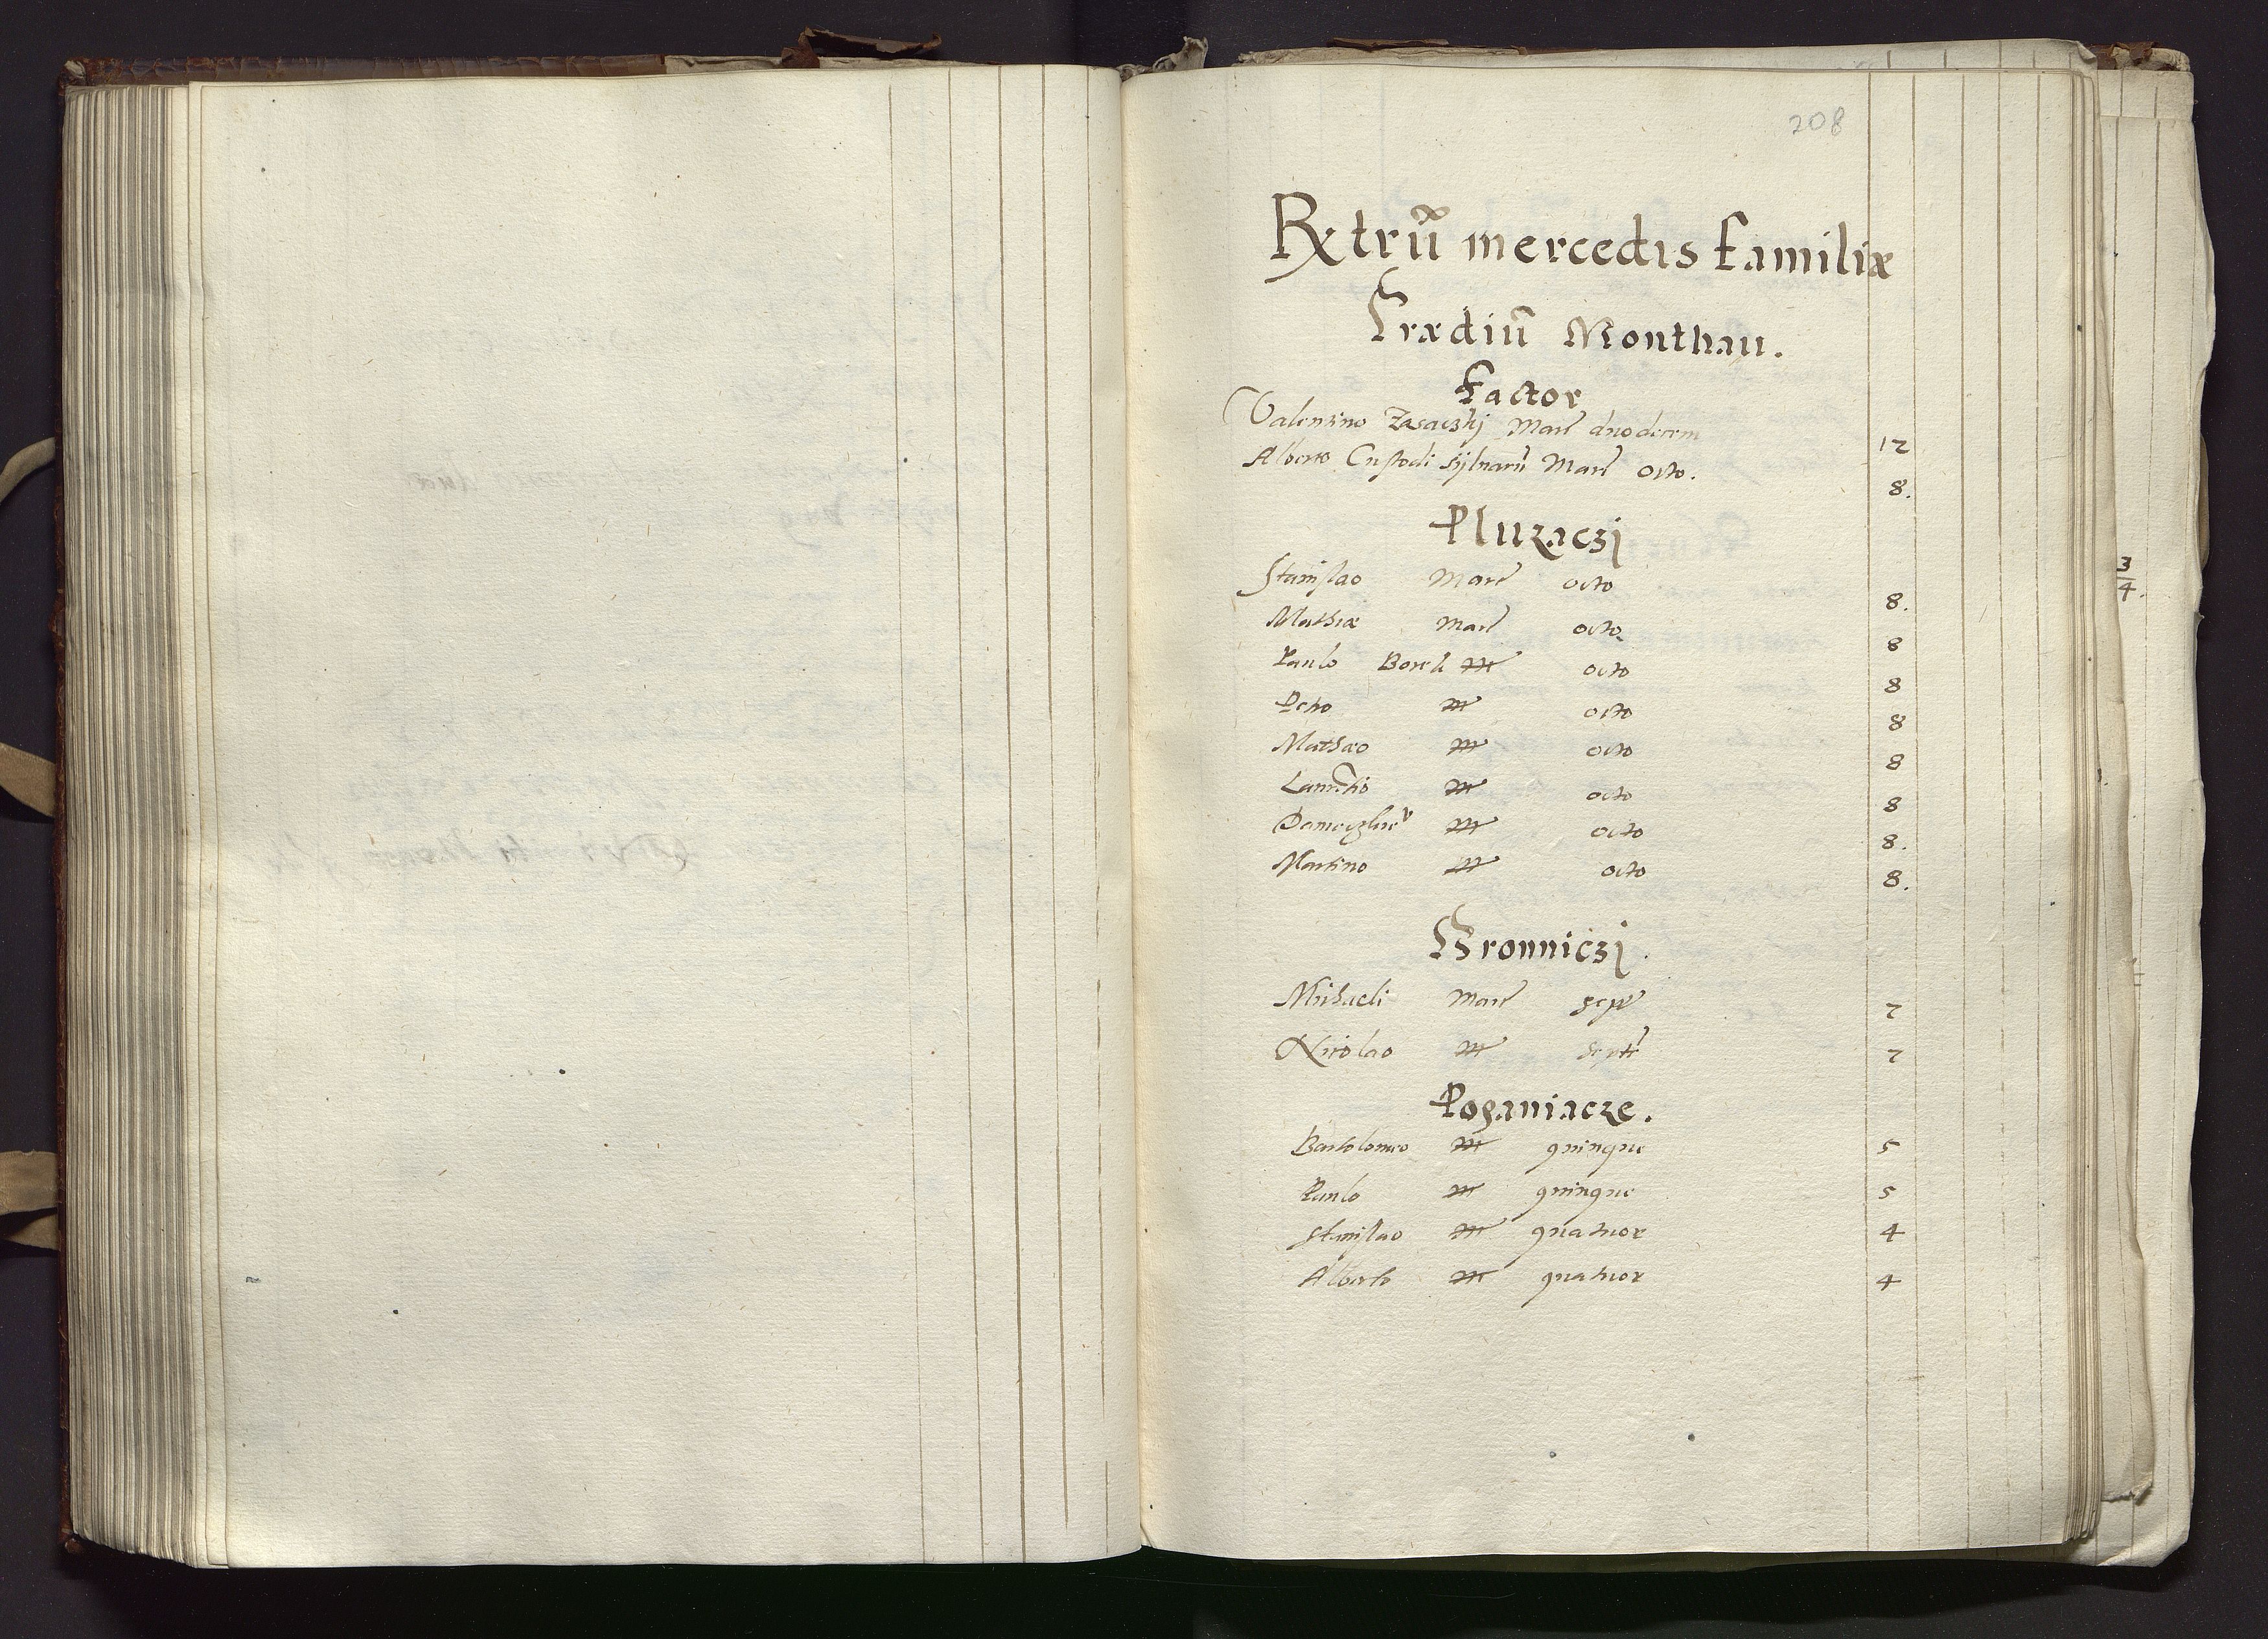 208
Rx̃trũ mercedis familiæ
Prædiũ Monthau.
Factor
Valentino Zasaczkj Marc duodecem 12
Alberto Custodi sylvarũ Marc octo. 8.
Pluzaczj
Stanislao Marc octo 8.
Mathiæ Marc octo 8
Paulo m octo 8
Petro m octo 8
Mathæo m octo 8
Laurẽtio m octo 8
m octo 8.
Martino m octo 8.
Bronniczj.
Michaeli Marc sept 7
Nicolao m septẽ 7
Poganiacze.
Bartolomeo m quinque 5
Paulo m quinque 5
Stanislao m quatuor 4
Alberto m quatuor 4
3
4.